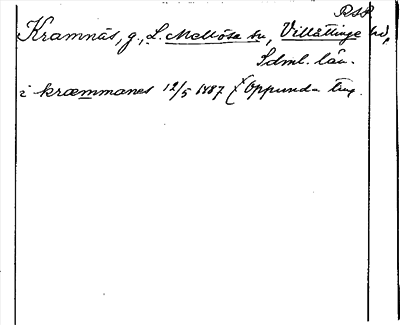 RSR
Kramnäs, g., L. Mellösa sn, Villåttinge hd,
Sdml. län.
i kræmmanes 12/5 1487 (Oppunda ting